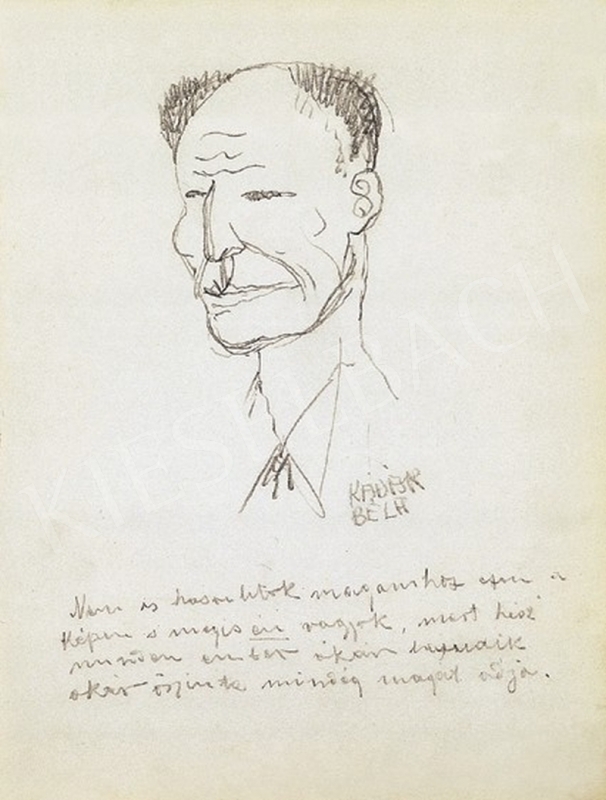 KÁDÁR
BÉLA
Nem is hasonlitok magamhoz ezen a
képen s mégis én vagyok, mert hisz
minden ember akár
akár őszinte mindég magát adja.
KIESELBACH